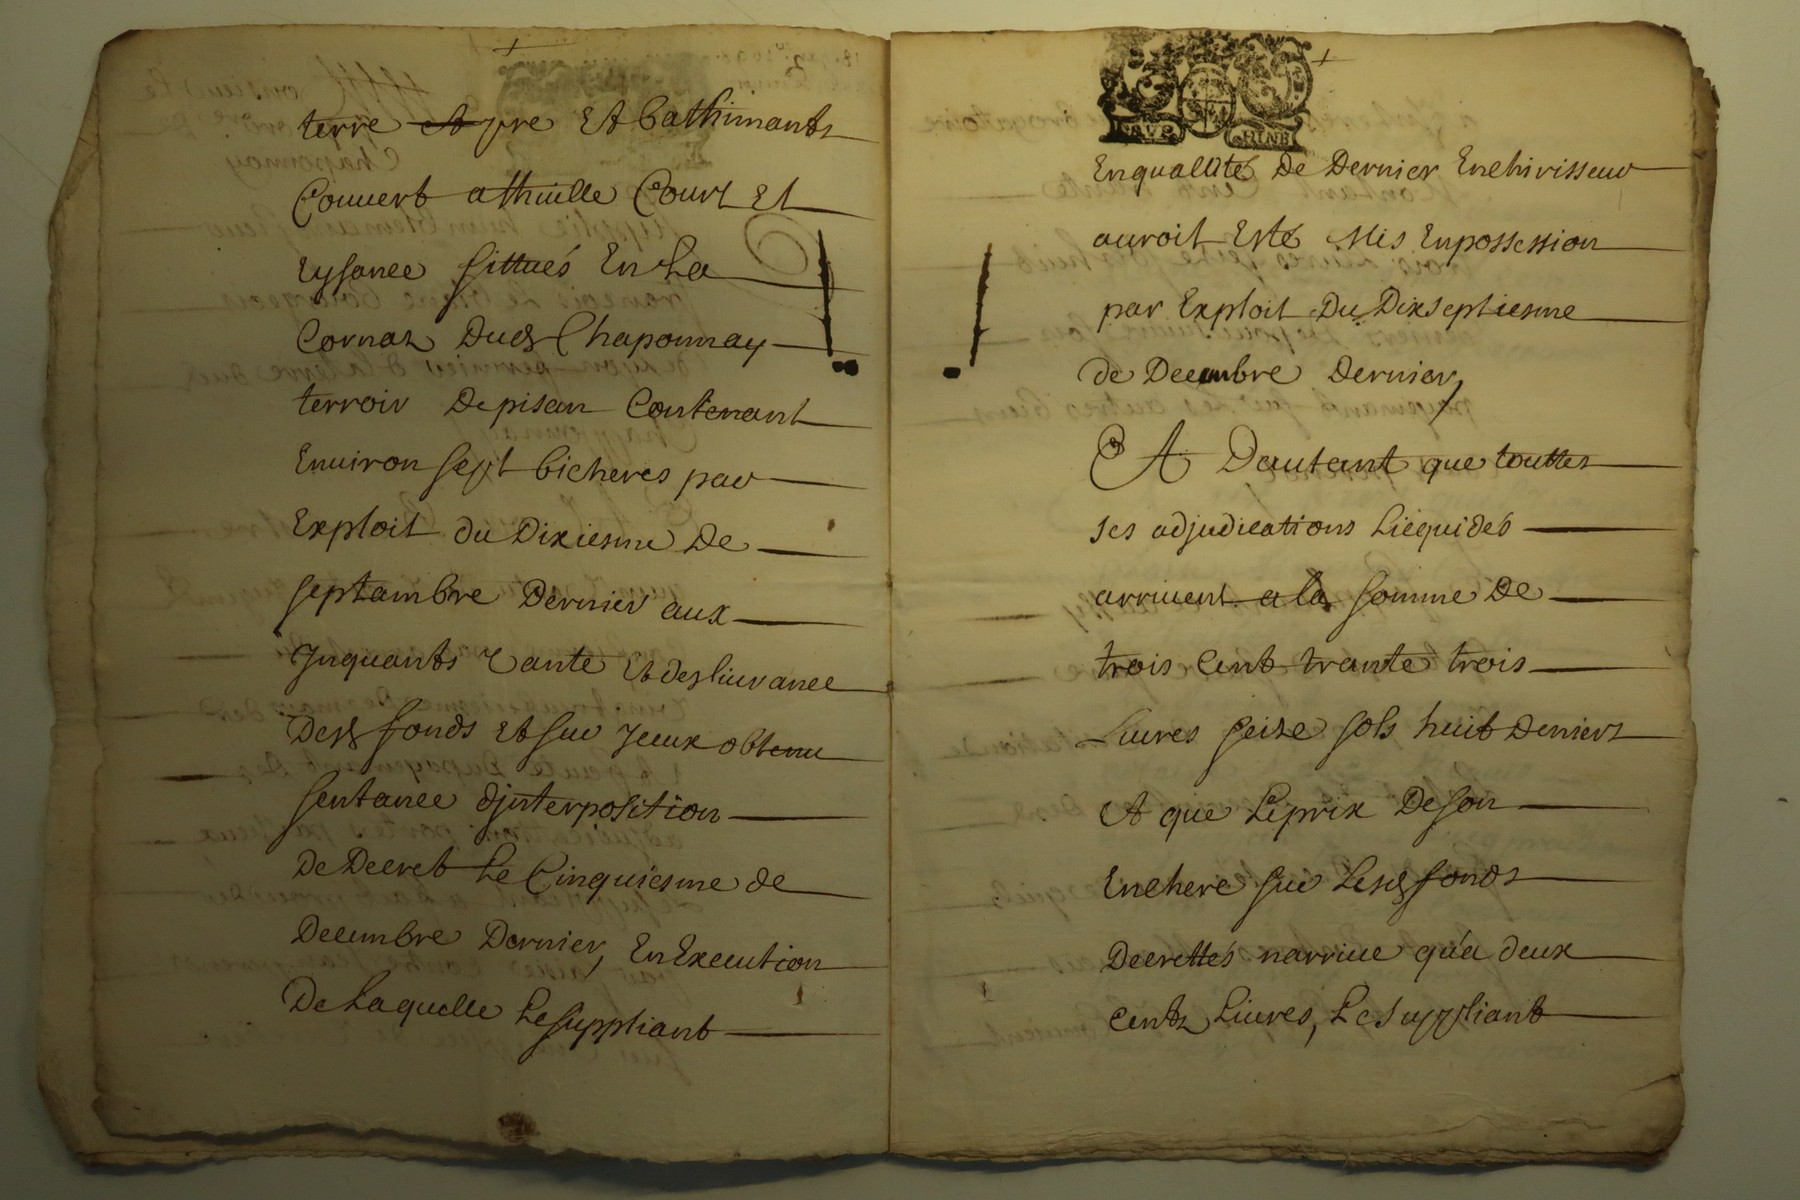 terre et pre Et bathimants
Couvert a thuille Court Et
Eysance sittués En La
Cornaz Dud Chaponnay
terroir De pisan Contenant
Environ sept bicheres par
Exploit du Dixiesme De
septambre Dernier aux
Inquants vante Et desliurance
Desd fonds Et sur Iceux obtenu
sentance d'interposition
De Decret Le Cinquiesme de
Decembre Dernier, En Execution
De Laquelle Le suppliant
En quallité De Dernier Encherisseur
auroit Esté Mis En possession
par Exploit Du Dixseptiesme
de Decembre Dernier,
Et Dautant que touttes
ses adjudications Liequidés
arrivent a la somme De
trois Cent trante trois
Livres seize sols huit Deniers
Et que Le prix De son
Enchere sur Lesd fonds
Decrettés narrive qu'a deux
Cents Livres, Le suppliant